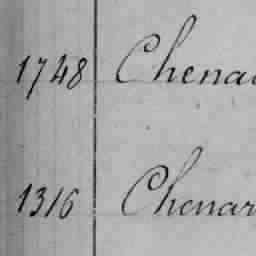 1748 Chena
1316 Chenar